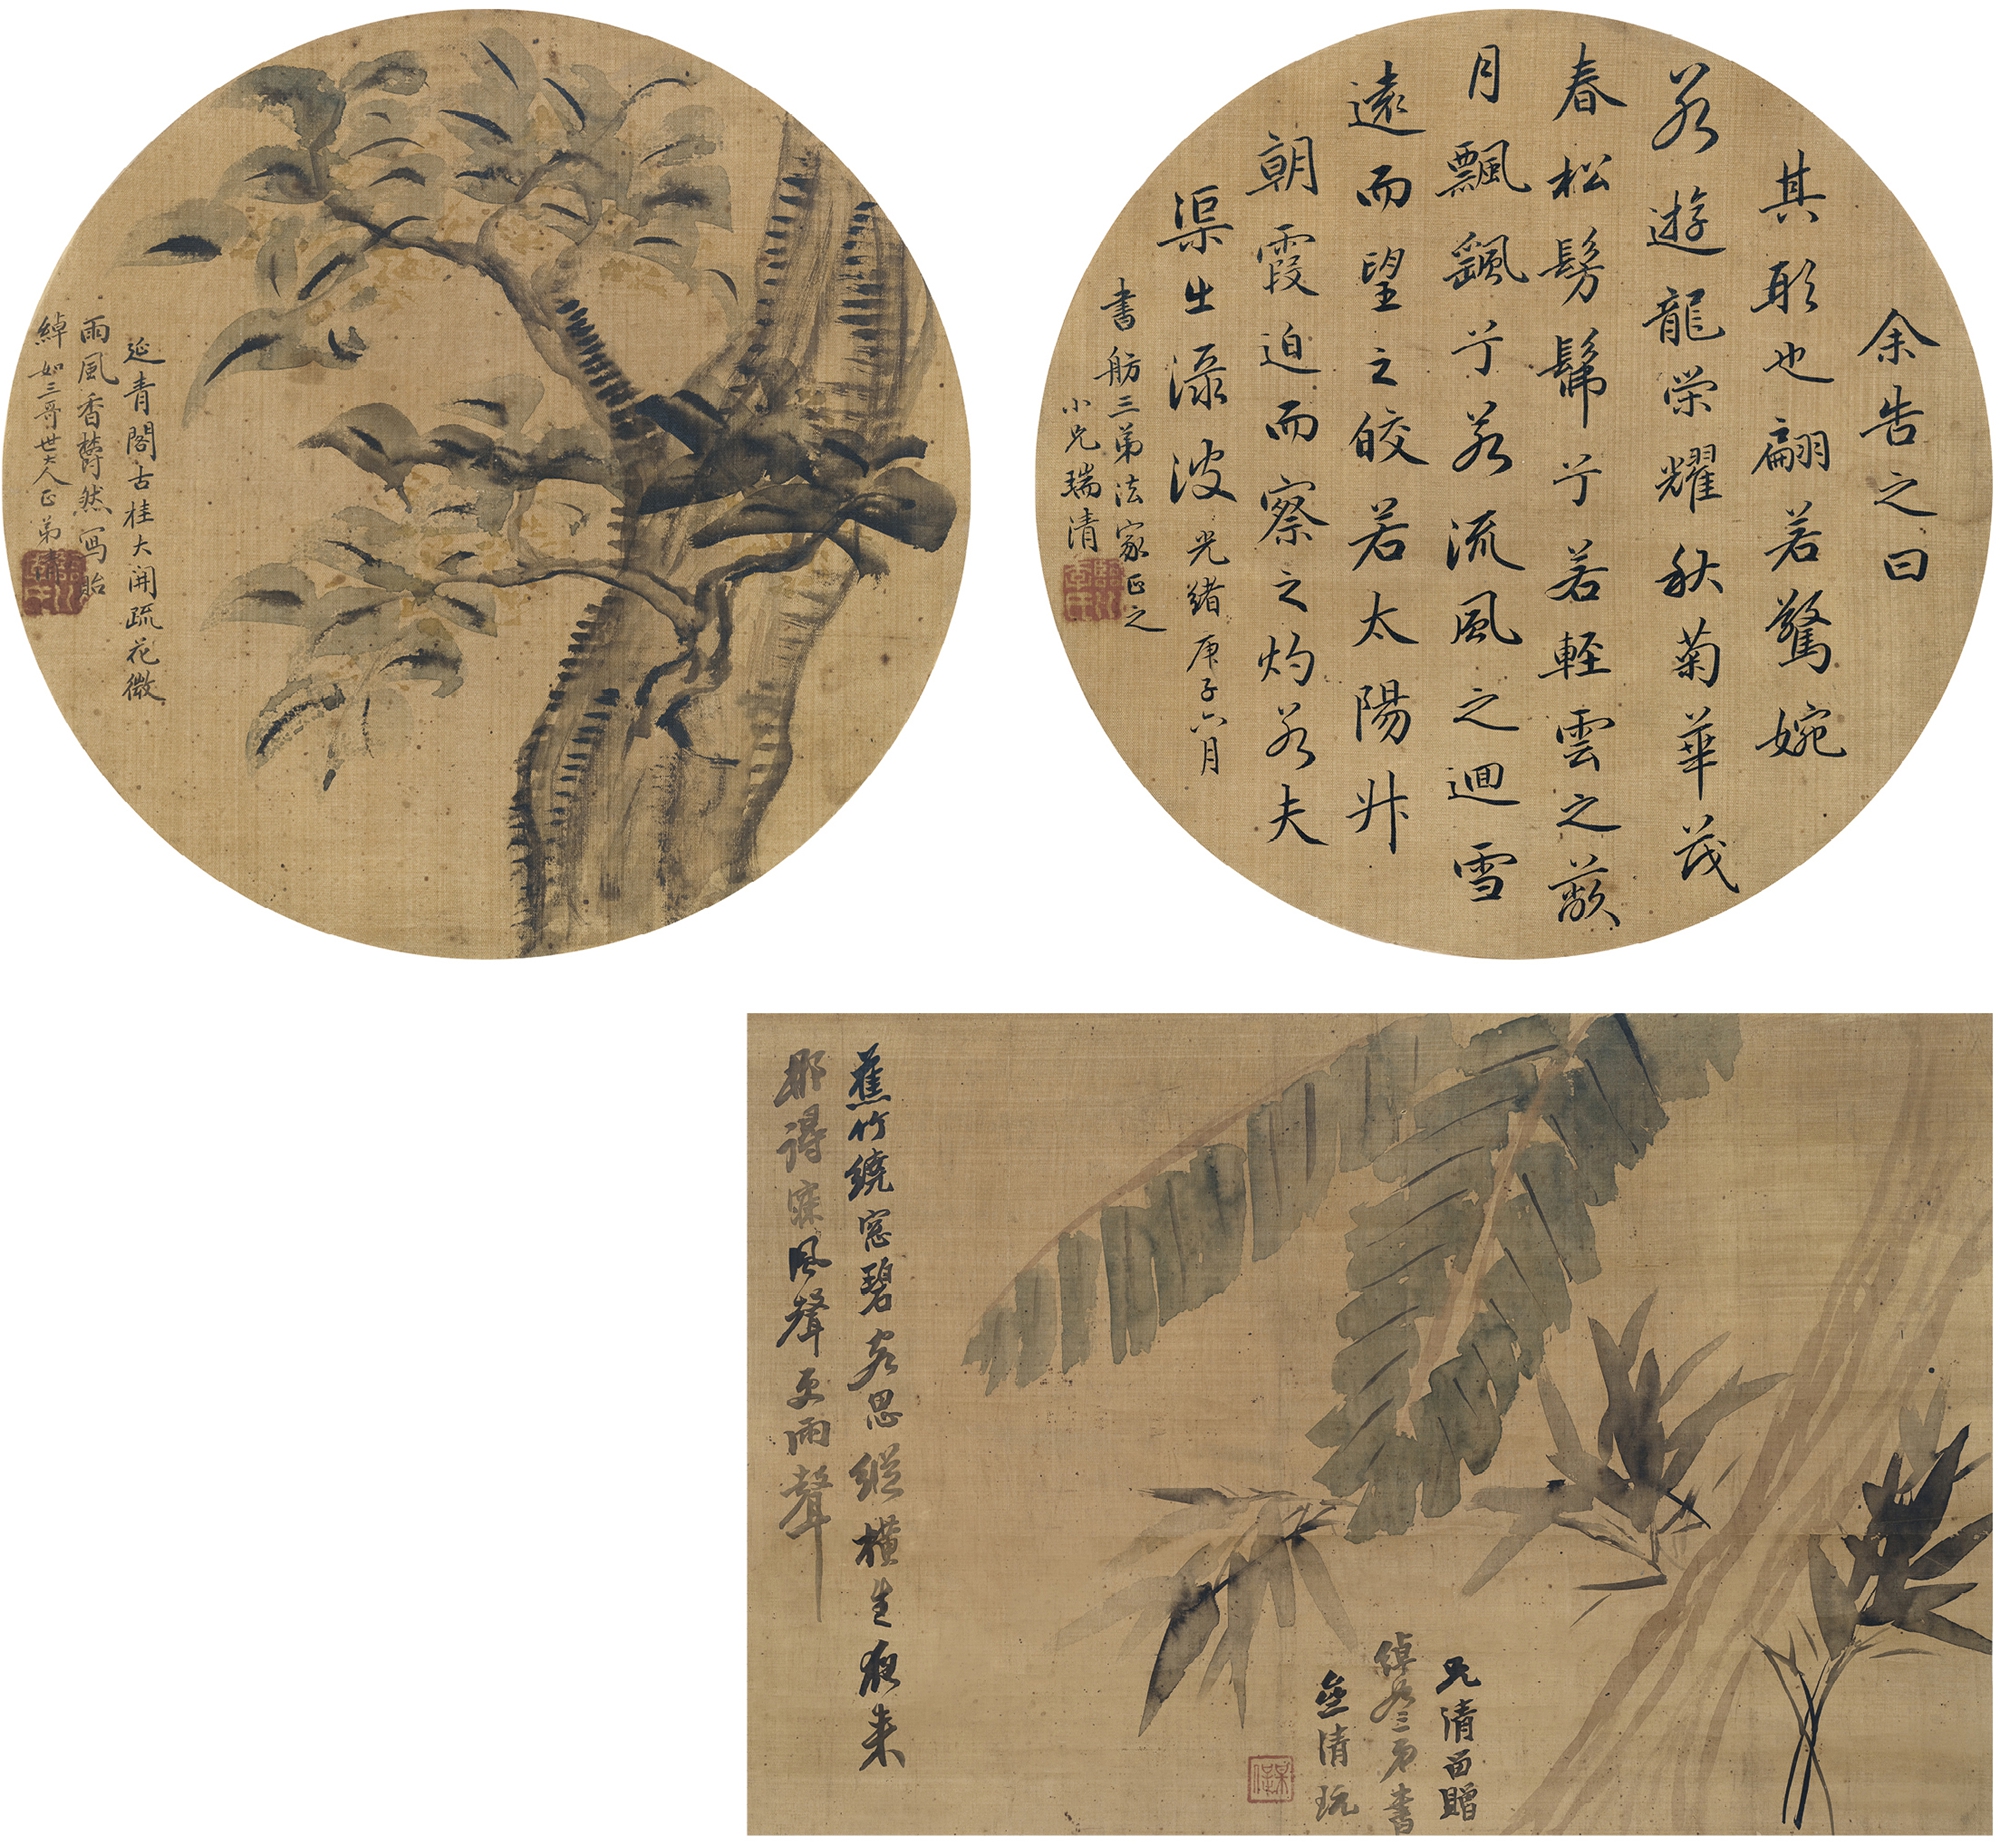 延青閣古桂大開疏花微
雨風香馡然寫貽
綽如三哥世大人正弟清
余告之曰
其形也翩若驚婉
若遊龍榮耀秋菊華茂
春松髣髴兮若輕雲之蔽
月飄飖兮若流風之迴雪
遠而望之皎若太陽升
朝霞迫而察之灼若夫
渠出渌波光緒庚子六月
書舫三弟法家正之
小兄瑞清
蕉竹繞窓碧客思縱橫生夜来
那得寐風聲更雨聲
兄清畱贈
綽如三弟書
盦清玩